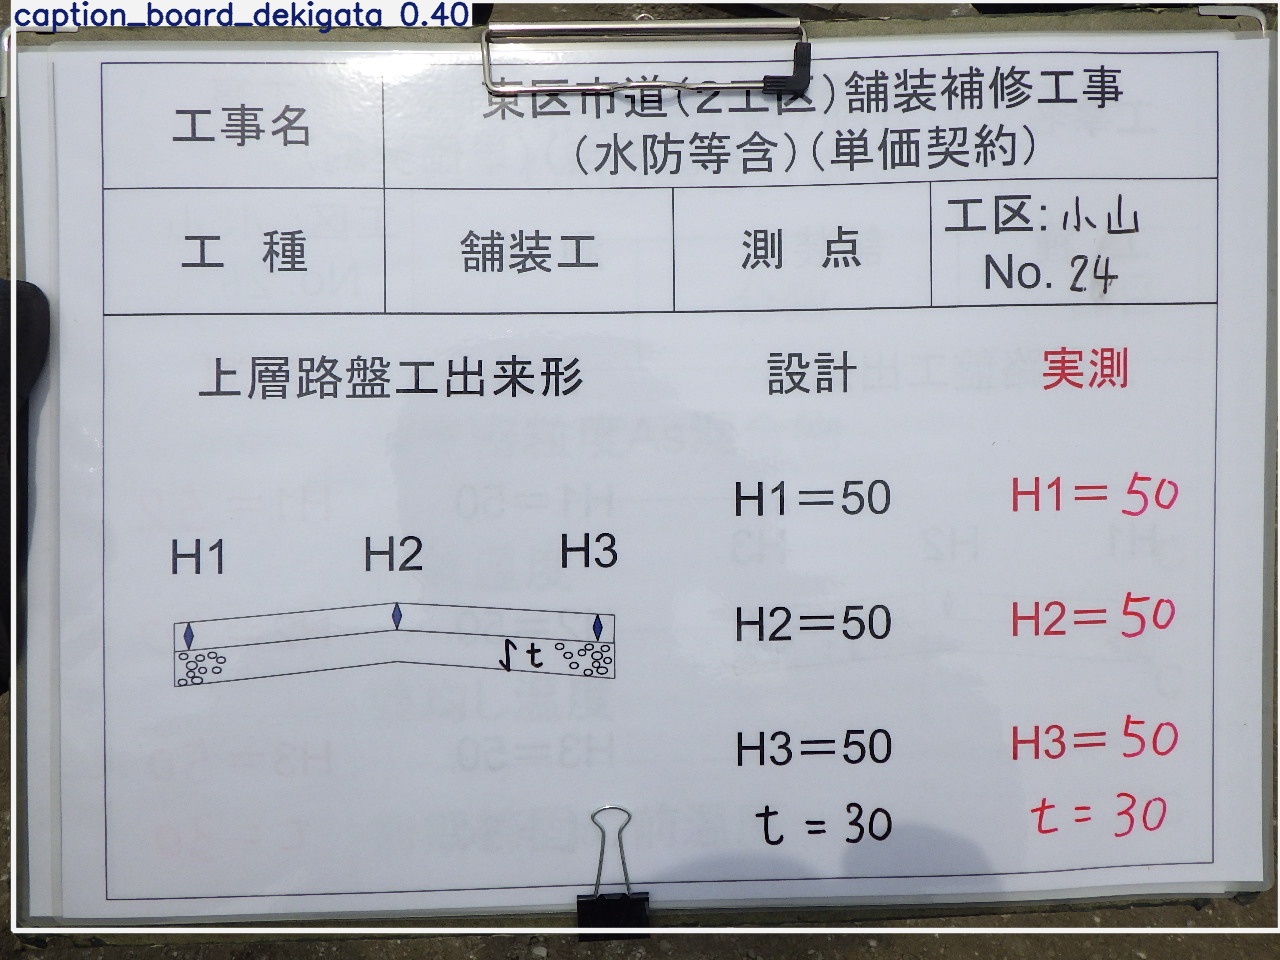 caption_board_dekigata 0.40
工事名
東区市道(2工区)舗装補修工事
(水防等含)(単価契約)
工 種
舗装工
測 点
工区: 小山
No. 24
上層路盤工出来形
設計
実測
H1=50
H1=50
H1 H2 H3
H2=50
H2=50
t
H3=50
H3=50
t=30
t=30